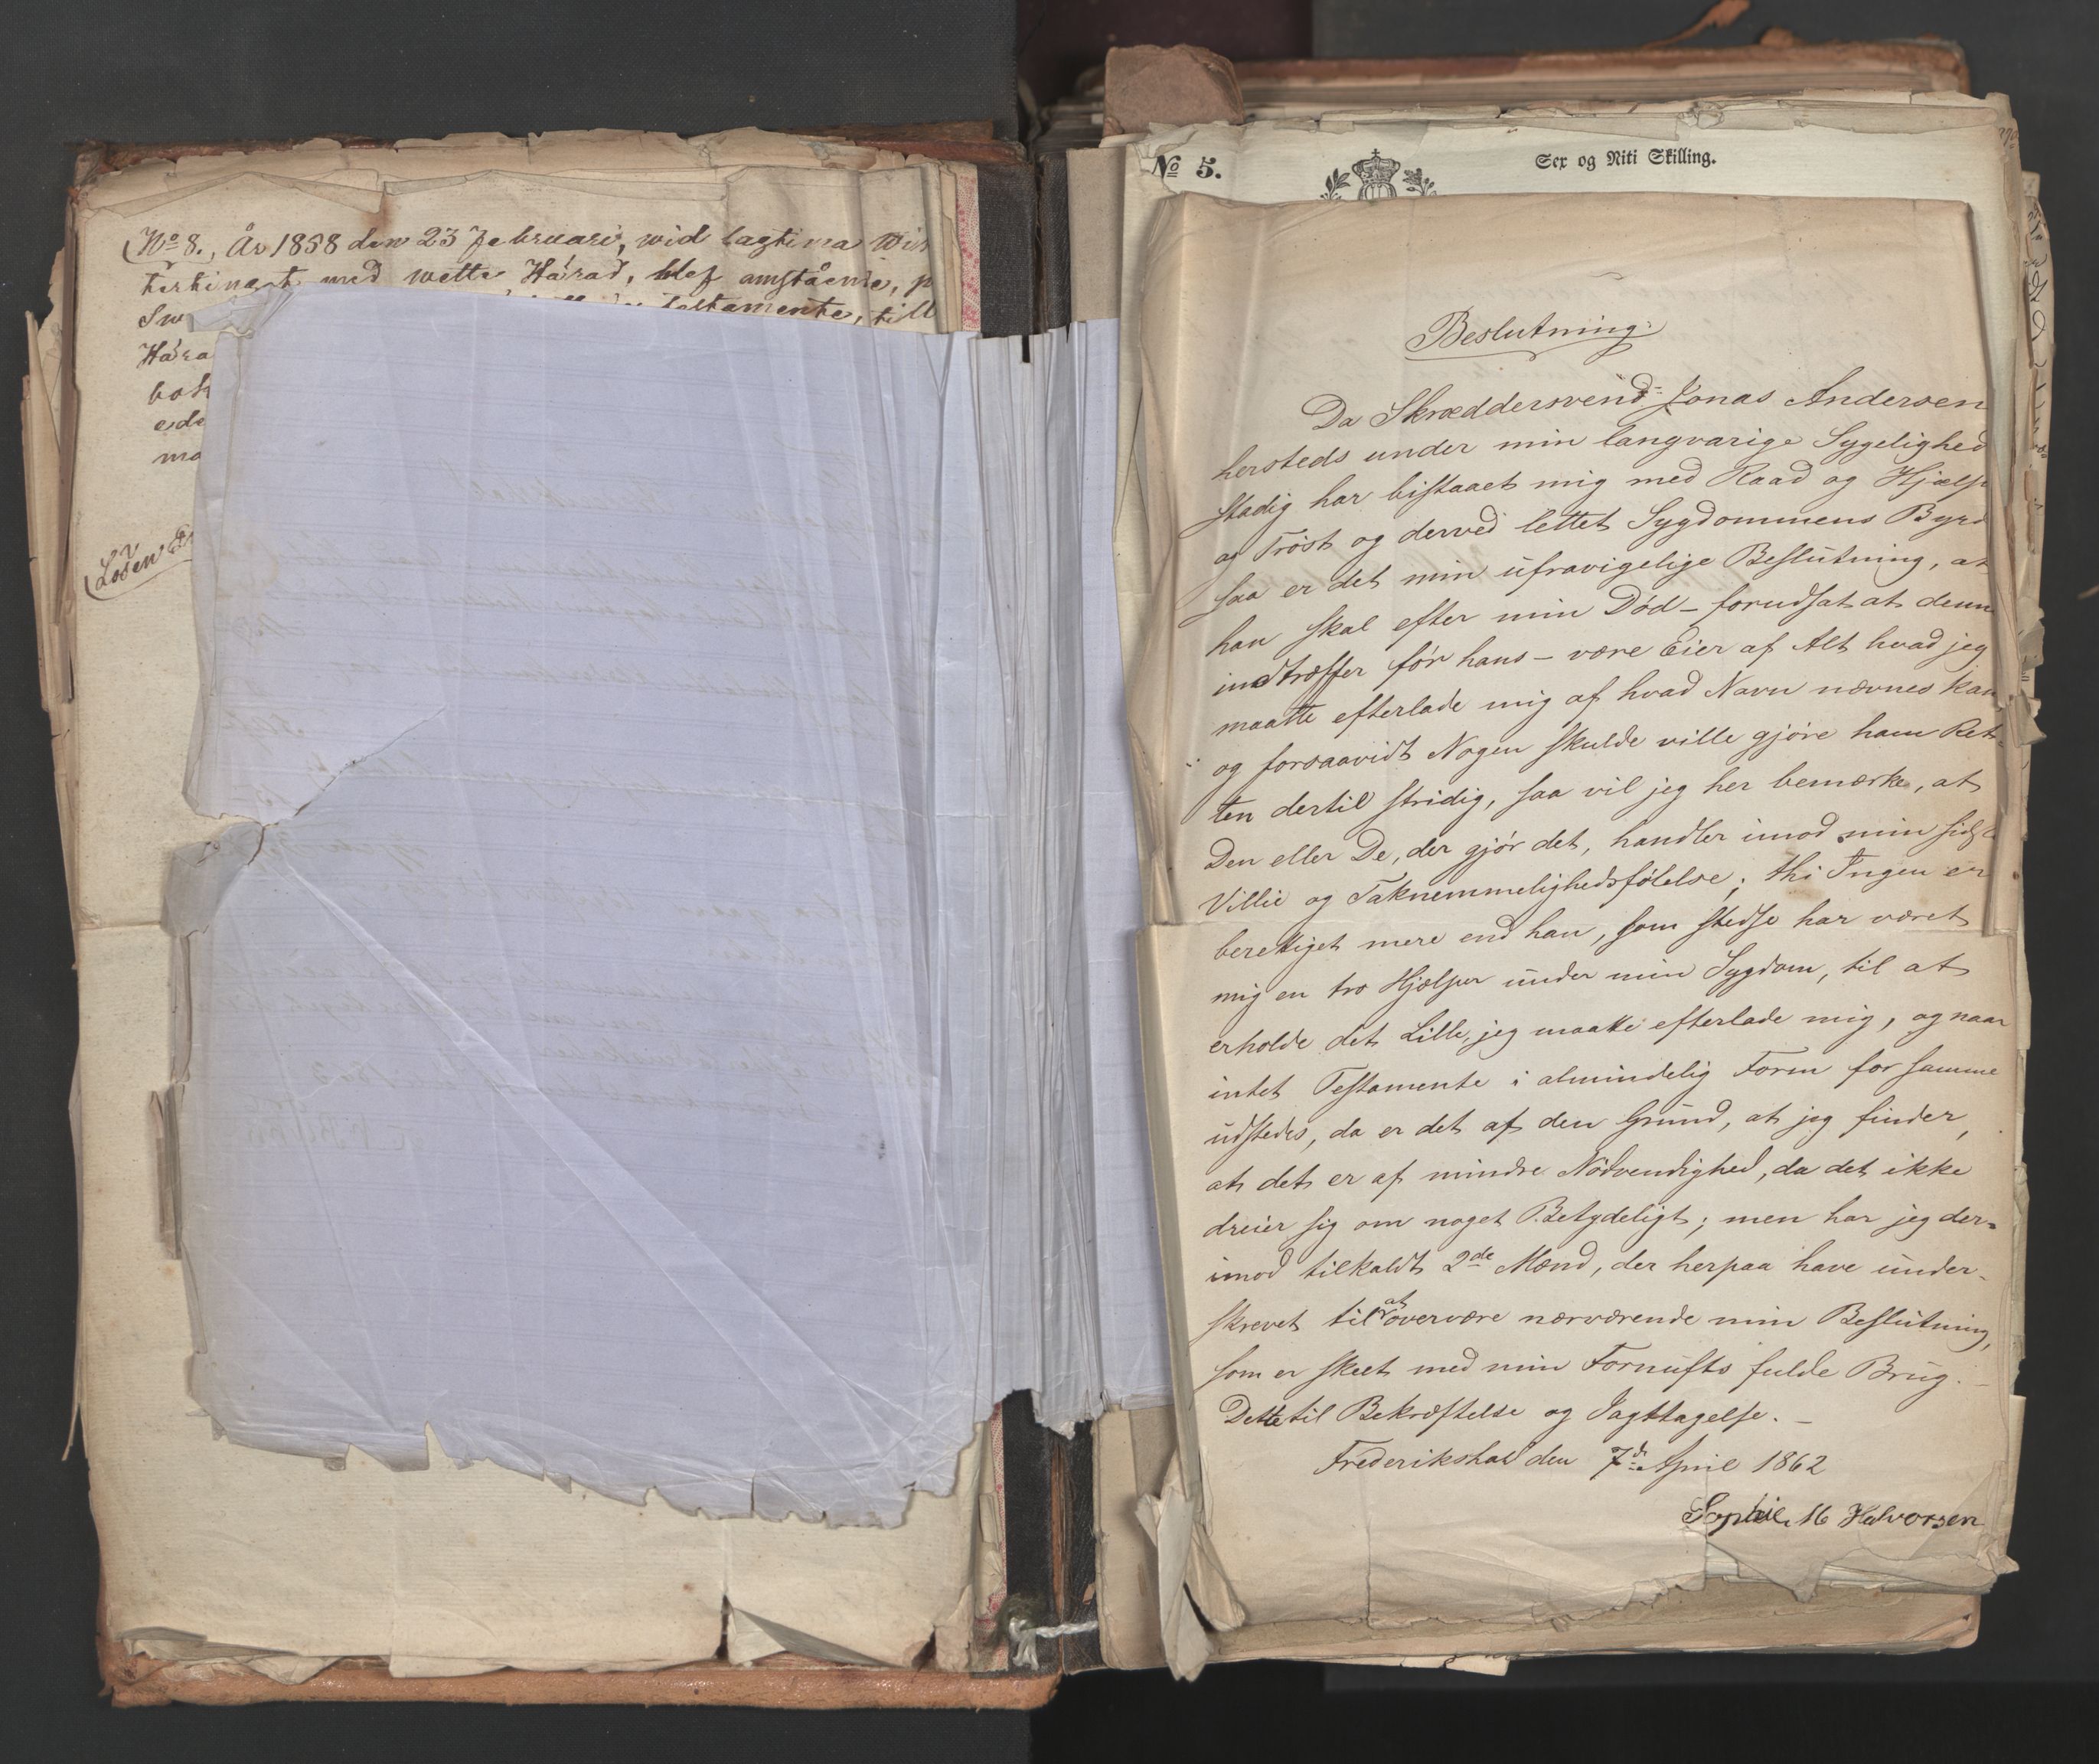 No 8., År 1858 den 23 Februari, wid lagtima Win
tertinget med wette Härad, blef omstående,
Sw testamente, till
Hära
bok
eda
ma
Lösen
No 5.
Sex og Niti Skilling.
Beslutning.
Da Skræddersvend Jonas Andersen
hersteds under min langvarige Sygelighed
stadig har bistaaet mig med Raad og Hjælp
og Trøst og derved lettet Sygdommens Byrd
saa er det min ufravigelige Beslutning, at
han skal efter min Død – forudsat at denn
indtræffer før hans – være Eier af Alt hvad jeg
maatte efterlade mig af hvad Navn nævnes kan
og forsaavidt Nogen skulde ville gjøre ham Ret-
ten dertil stridig, saa vil jeg her bemærke, at
Den eller De, der gjør det, handler imod min sidste
Villie og Taknemmelighedsfølelse; thi Ingen er
berettiget mere end han, som stedse har været
mig en tro Hjælper under min Sygdom, til at
erholde det Lille, jeg maatte efterlade mig, og naar
intet Testamente i almindelig Form for samme
udstedes, da er det af den Grund, at jeg finder,
at det er af mindre Nødvendighed, da det ikke
dreier sig om noget Betydeligt; men har jeg der=
imod tilkaldt 2de Mænd, der herpaa have under-
skrevet til at overvære nærværende min Beslutning,
som er skeet med min Fornufts fulde Brug. –
Dette til Bekræftelse og Iagttagelse. –
Frederikshald den 7de April 1862
Sophie M Halvorsen